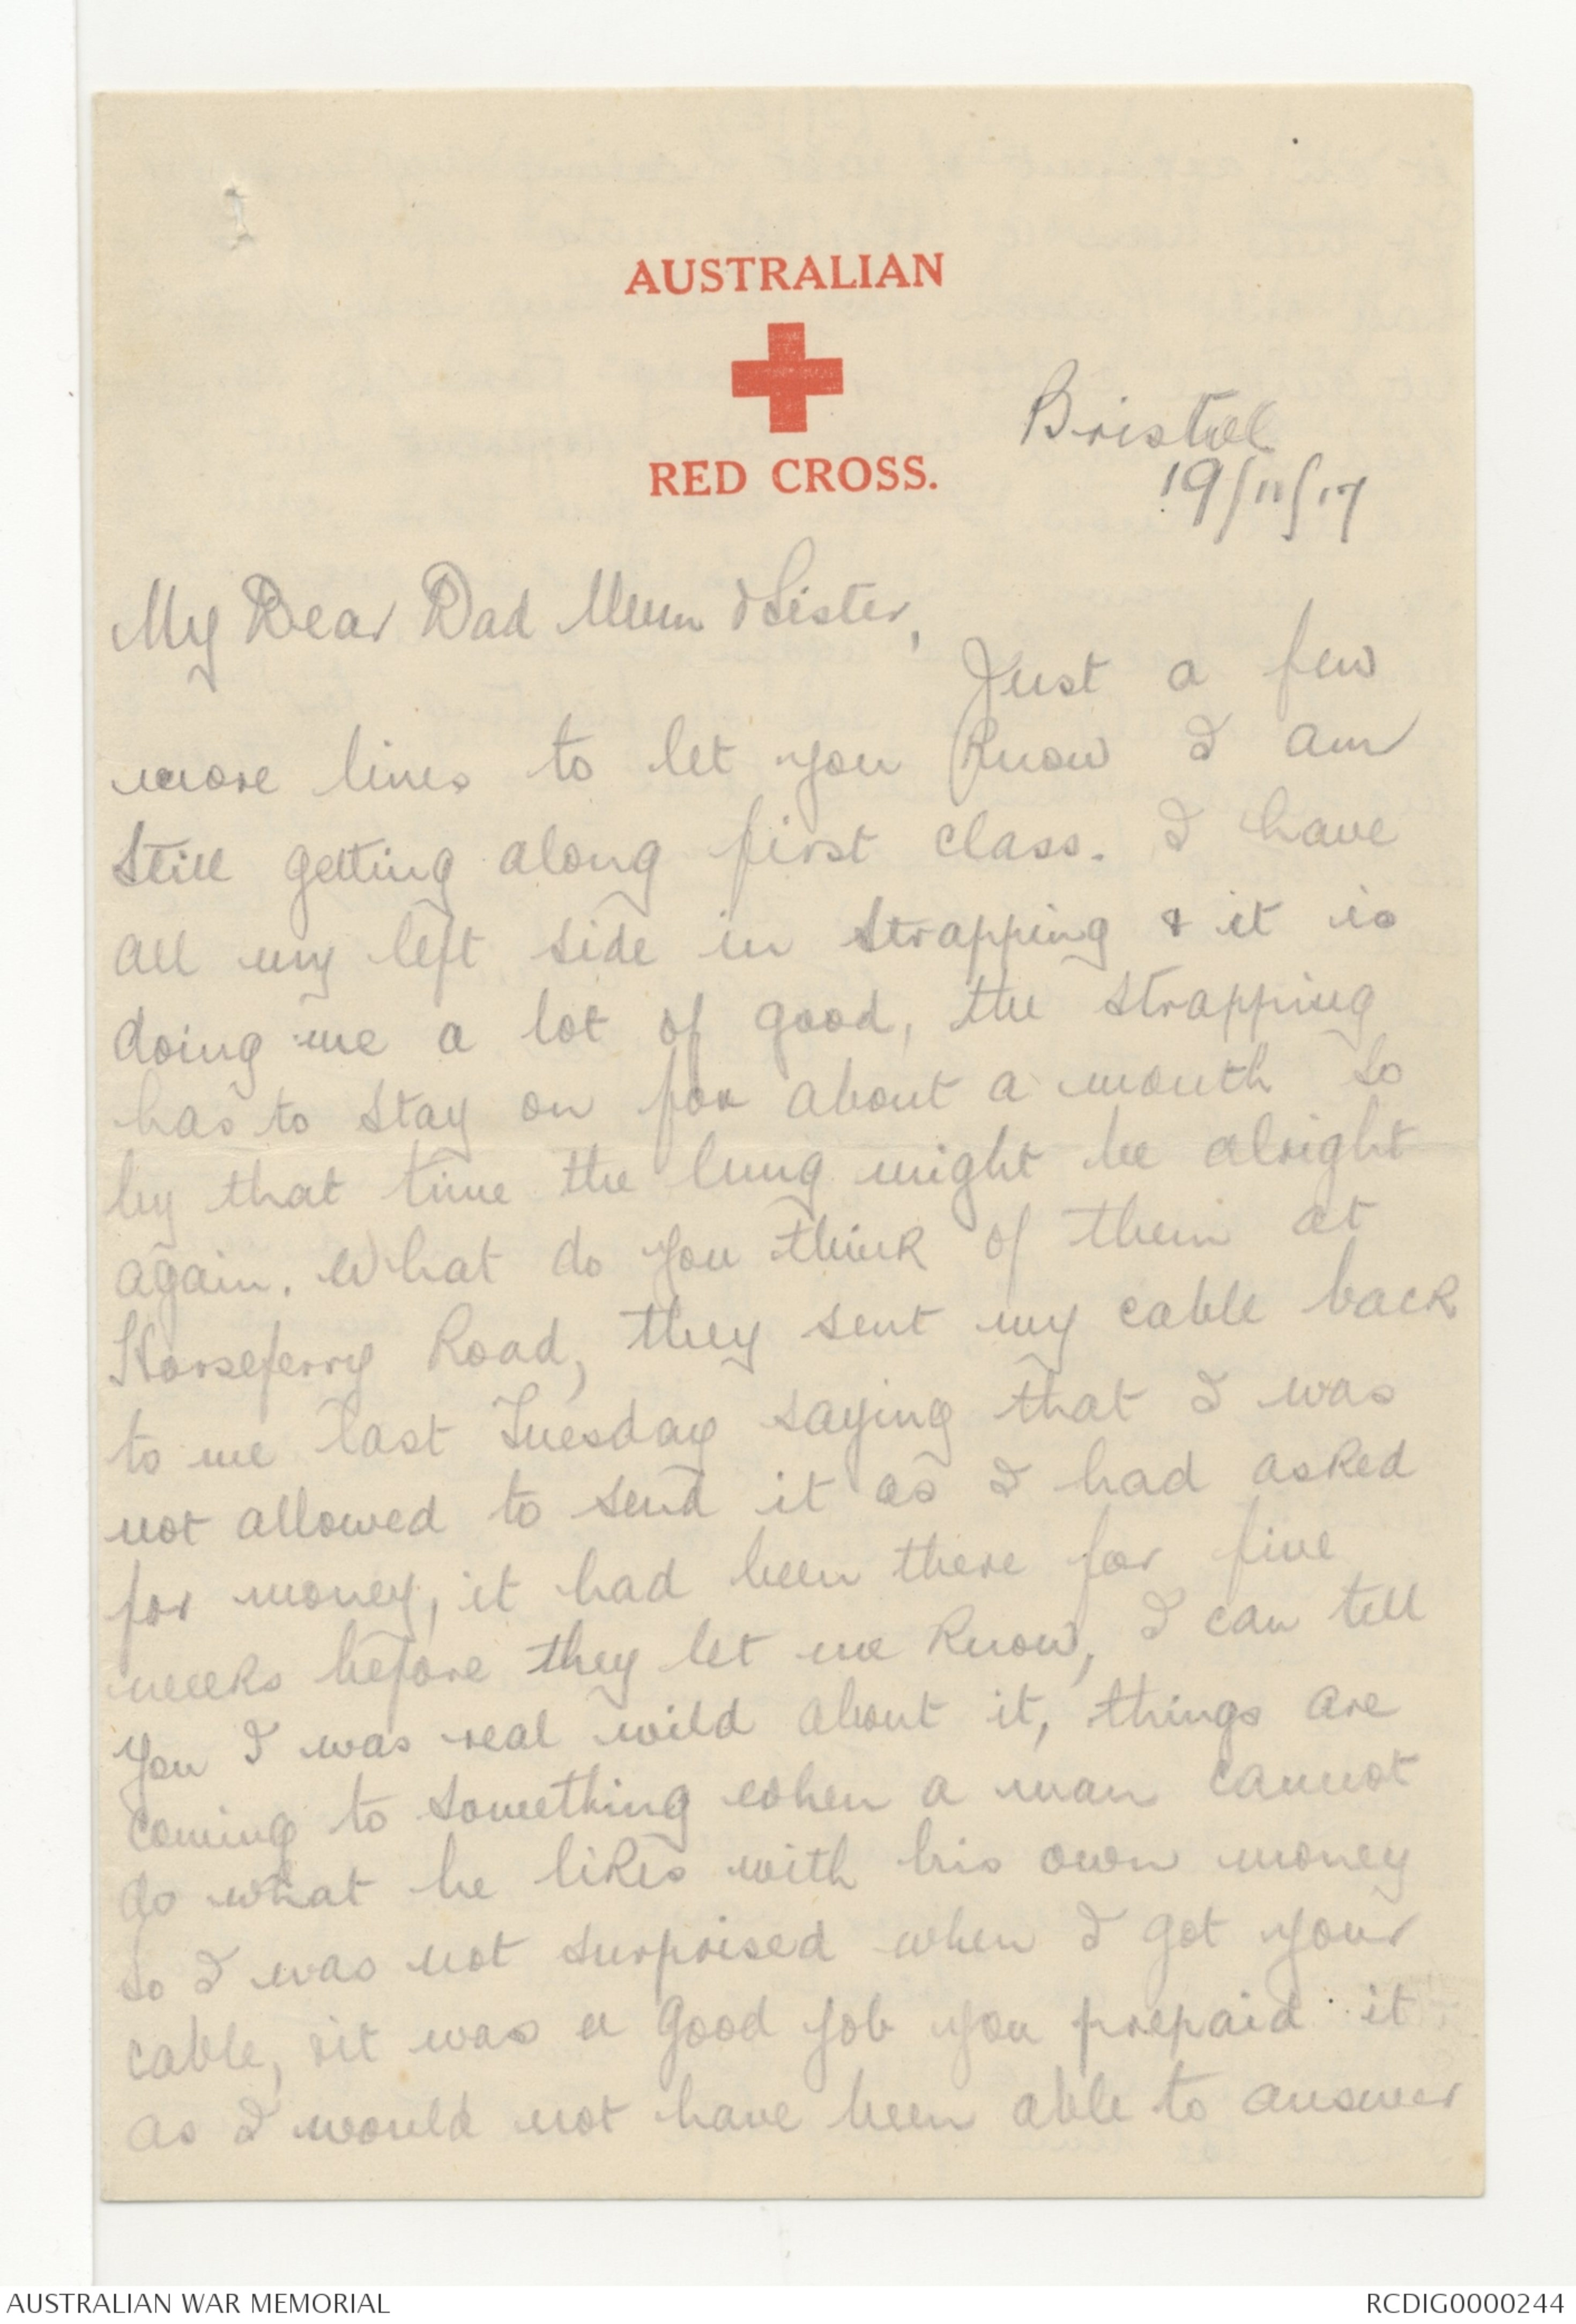 AUSTRALIAN
RED CROSS.
Bristol
19/11/17
My Dear Dad Mum & Sister,
Just a few
more lines to let you know I am
still getting along first class. I have
all my left side in strapping & it is
doing me a lot of good, the strapping
has to stay on for about a month so
by that time the lung might be alright
again. What do you think of them at
Horseferry Road, they sent my cable back
to me last Tuesday saying that I was
not allowed to send it as I had asked
for money, it had been there for five
weeks before they let me know, I can tell
you I was real wild about it, things are
coming to something when a man cannot
do what he likes with his own money
so I was not surprised when I got your
cable, it was a good job you prepaid it
as I would not have been able to answer
AUSTRALIAN WAR MEMORIAL
RCDIG0000244